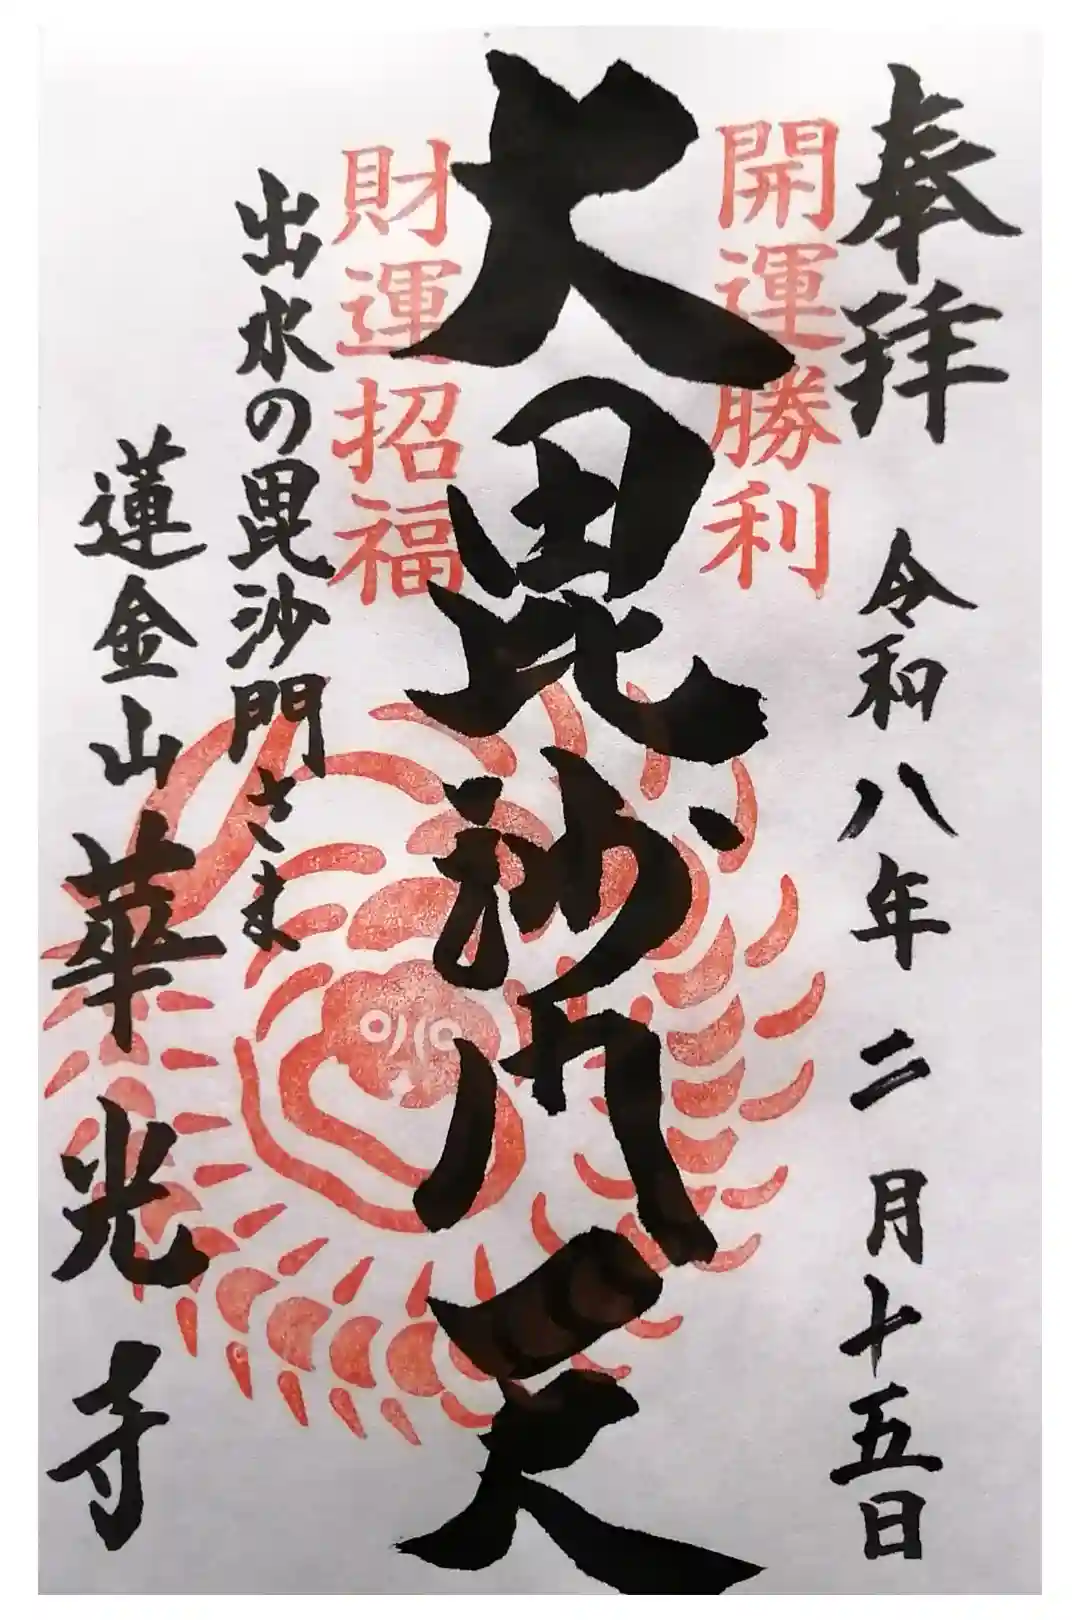 奉拝 令和八年 二月十五日
開運勝利
大毘沙門天
財運招福
出水の毘沙門さま
蓮金山 華光寺